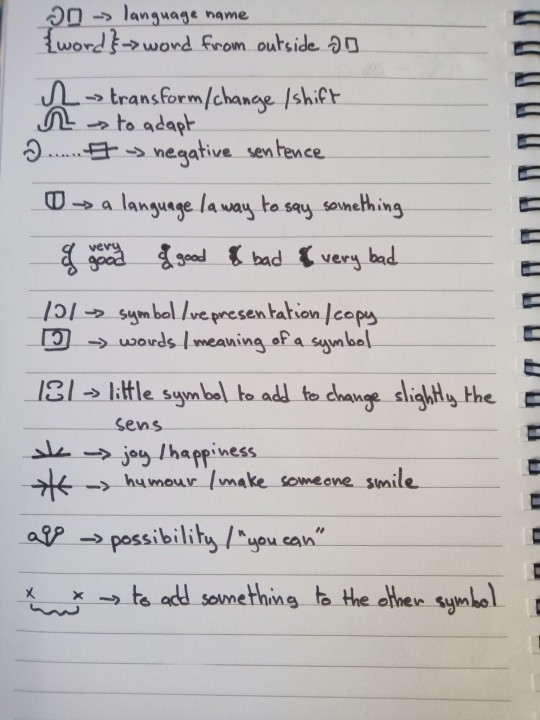 → language name
{word}→ word from outside
→ transform/change/shift
→ to adapt
...... → negative sentence
→ a language/a way to say something
very good good bad very bad
/Ɔ/ → symbol/representation/copy
→ words/meaning of a symbol
→ little symbol to add to change slightly the
sens
→ joy/happiness
→ humour/make someone smile
→ possibility/"you can"
x x → to add something to the other symbol